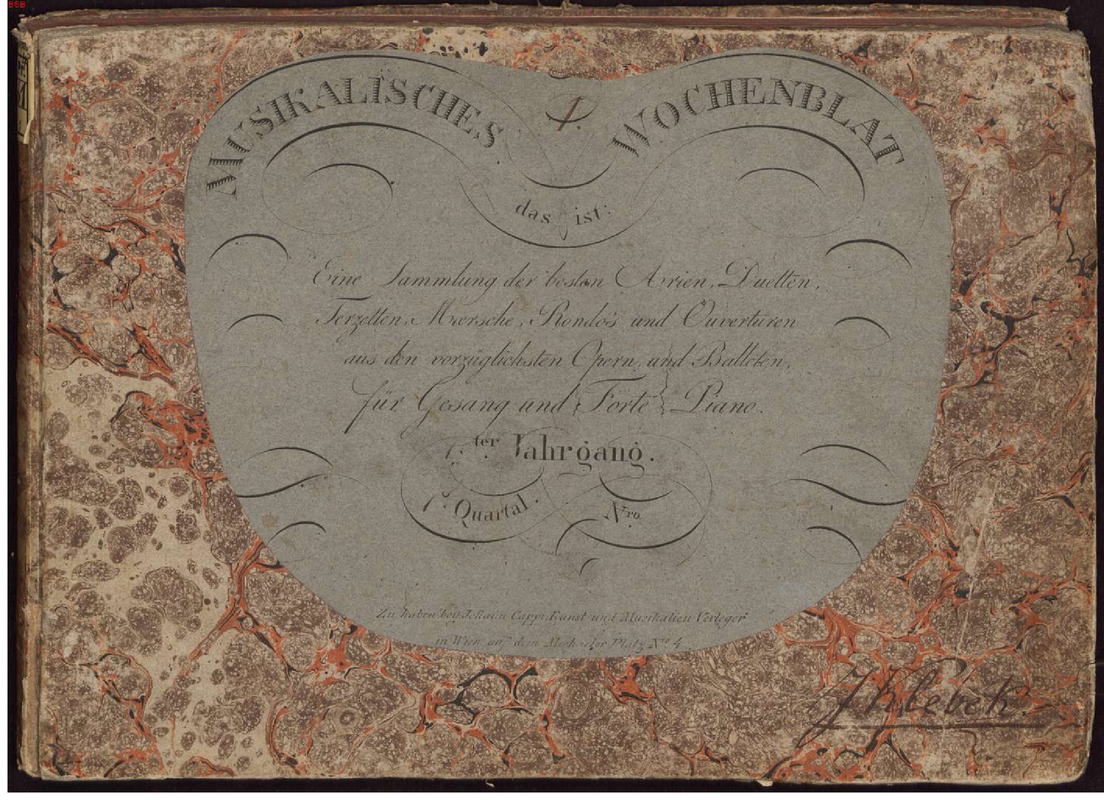 BSB
MUSIKALISCHES 1. WOCHENBLAT
das ist:
Eine Sammlung der besten Arien, Duetten,
Terzetten, Mærsche, Rondo's und Ouverturen
aus den vorzüglichsten Opern, und Balleten,
für Gesang und Forte Piano.
1. ter Jahrgang.
1s Quartal. Nro.
Zu haben bey Johann Cappi Kunst und Musikalien Verleger
in Wien auf dem Platz No 4